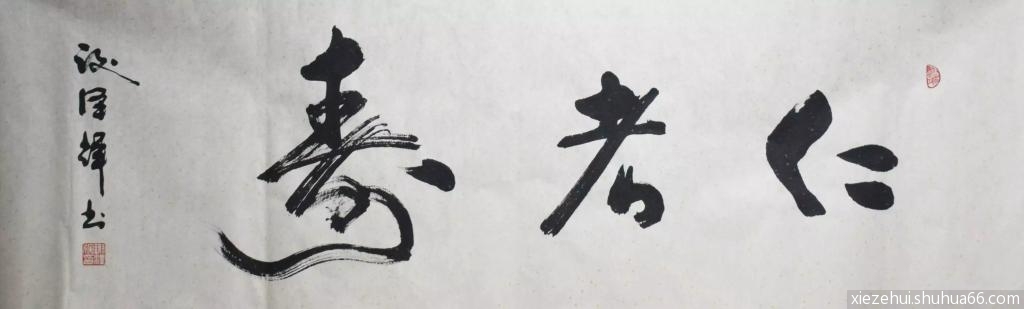 仁者寿
谢泽辉书
xiezehui.shuhua66.com